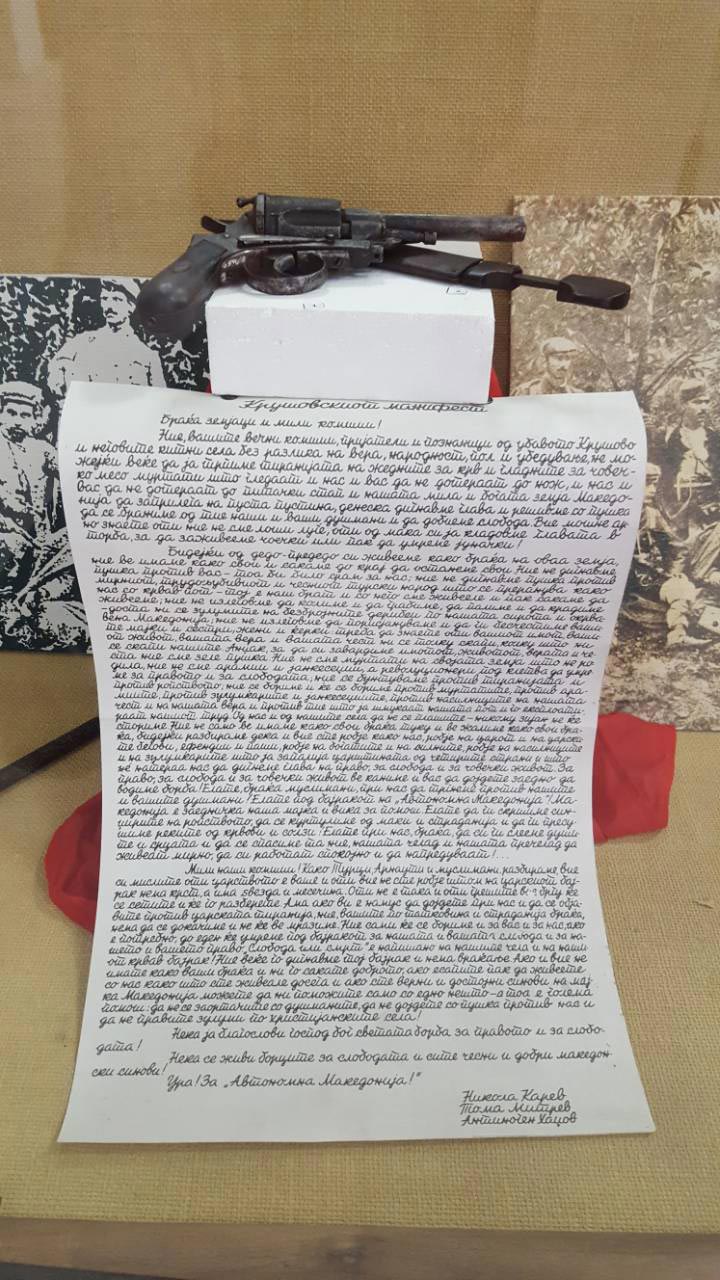 Крушовскиот манифест
Браќа земјаци и мили комшии!
Ние, вашите вечни комшии, пријатели и познаници од убавото Крушово
и неговите китни села без разлика на вера, народност, пол и убедување, не мо-
жејќи веќе да ја трпиме тиранијата на жедните за крв и гладните за човеч-
ко месо муртати што гледаат и нас и вас да не дотераат до нож, и нас и
вас да не дотераат до питачки стап и нашата мила и богата земја Македо-
нија да заприлега на пуста пустина, денеска дигнавме глава и решивме со пушка
да се браниме од тие наши и ваши душмани и да добиеме слобода. Вие мошне ар-
но знаете оти ние не сме лоши луѓе, оти од мака си ја кладовме главата в
торба, за да заживееме чоечки или пак да умреме јуначки!
Бидејќи од дедо-предедо си живееме како браќа на оваа земја,
ние ве имаме како свои и сакаме до крај да останеме свои. Ние не дигнавме
пушка против вас - тоа би било срам за нас; ние не дигнавме пушка против
мирниот, трудољубивиот и чесниот турски народ што се прехранува како
нас со крвав пот - тој е наш брат и со него сме живееле и пак сакаме да
живееме; ние не излеговме да колиме и да грабиме, да палиме и да крадиме
-доста ни се зулумите на безбројните дербеи по нашата сирота и окрва-
вена Македонија; ние не излеговме
те мајки и сестри, жени и ќерки; треба да знаете оти вашиот имот, ваши-
от живот, вашата вера и вашата чест ни се толку скапи, колку што ни
се скапи нашите. Анџак, за да си завардиме имотот, животот, верата и че-
ста ние сме зеле пушка. Ние не сме муртати на својата земја што не ро-
дила, ние не сме арамии и јанкесеџии, а револуционери под клетва да умре-
ме за правото и за слободата; ние се бунтуваме против тиранијата и
против ропството; ние се бориме и ќе се бориме против муртатите, против ара-
миите, против зулумќарите и јанкесеџиите, против насилниците на нашата
чест и на нашата вера и против тие што ја шмукаат нашата пот и го експлоати-
раат нашиот труд. Од нас и од нашите села да не се плашите - никому зијан не ќе
сториме. Ние не само ве имаме како свои браќа туку и ве жалиме како свои бра-
ќа, бидејќи разбираме дека и вие сте робје како нас, робје на царот и на царски-
те бегови, ефендии и паши, робје на богатите и на силните, робје на насилниците
и на зулумќарите што ја запалија царштината од четирите страни и што
не натераа нас да дигнеме глава за право, за слобода и за човечки живот. За
право, за слобода и за човечки живот ве каниме и вас да дојдете заедно да
водиме борба! Елате, браќа муслимани, при нас да тргнеме против нашите
и вашите душмани! Елате под бајракот на „Автономна Македонија“! Ма-
кедонија е заедничка наша мајка и вика за помош. Елате да ги скршиме син-
џирите на ропството, да се куртулиме од маки и страданија и да ги пресу-
шиме реките од крвови и солзи! Елате при нас, браќа, да си ги слееме души-
те и срцата и да се спасиме та ние, нашата челад и нашата пречелад да
живеат мирно, да си работат спокојно и да напредуваат!...
Мили наши комшии! Како Турци, Арнаути и муслимани, разбираме, вие
си мислите оти царството е ваше и оти вие не сте робје штом на царскиот бај-
рак нема крст, а има ѕвезда и месечина. Оти не е така и оти грешите в'ч бргу ќе
се сетите и ќе го разберете. Ама ако ви е намус да дојдете при нас и да се обја-
вите против царската тиранија, ние, вашите по татковина и страданија браќа,
нема да се докачиме и не ќе ве мразиме. Ние сами ќе се бориме и за вас и за нас, ако
е потребно, до еден ќе умреме под бајракот за нашата и вашата слобода и за на-
шето и вашето право. „Слобода или смрт“ е напишано на нашите чела и на наши-
от крвав бајрак! Ние веќе го дигнавме тој бајрак и нема враќање. Ако и вие не
имате како ваши браќа и ни го сакате доброто, ако есапите пак да живеете
со нас како што сте живееле досега и ако сте верни и достојни синови на мај-
ка Македонија можете да ни поможите само со едно нешто - а тоа е голема
помош: да не се заортачите со душманите, да не дојдете со пушка против нас и
да не правите зулуми по христијанските села!
Нека ја благослови господ бог светата борба за правото и за слобо-
дата!
Нека се живи борците за слободата и сите чесни и добри македон-
ски синови!
Ура! За „Автономна Македонија!“
Никола Карев
Тома Митрев
Антиноген Хаџов